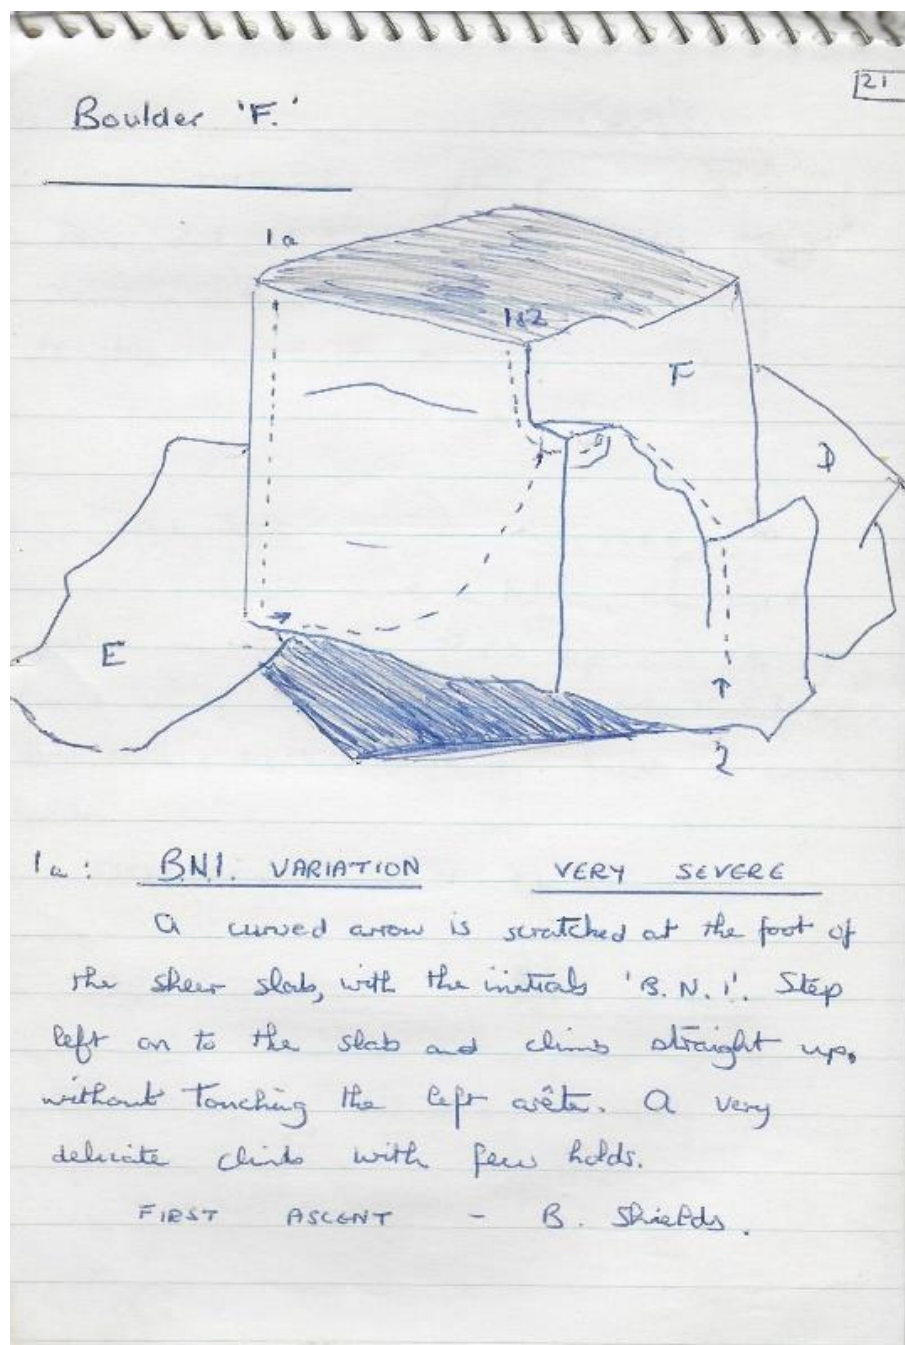 21
Boulder 'F.'
1a
1&2
F
D
E
2
1a: B.N.I. VARIATION VERY SEVERE
A curved arrow is scratched at the foot of
the sheer slab, with the initials 'B.N.I'. Step
left on to the slab and climb straight up,
without touching the left arête. A very
delicate climb with few holds.
FIRST ASCENT - B. Shields.